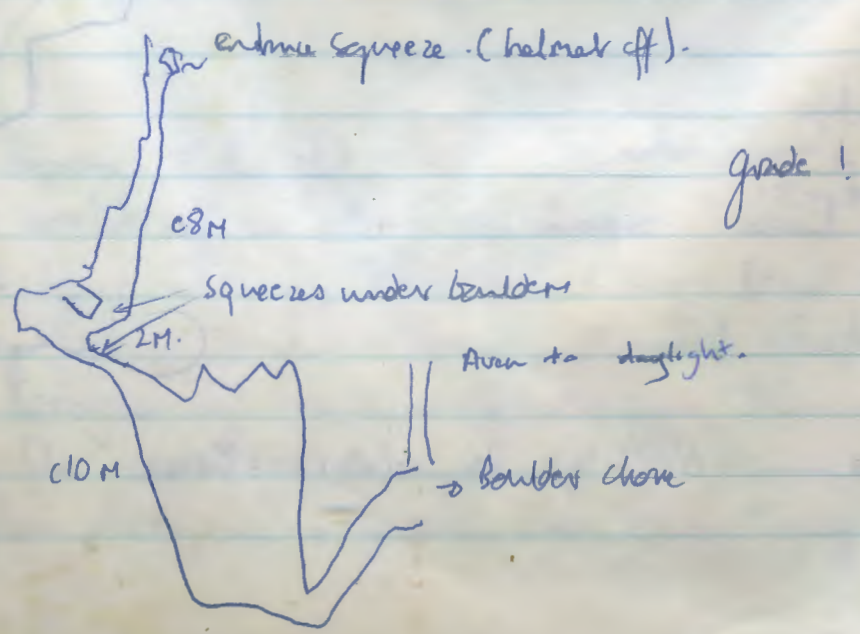 entrance squeeze. (helmet off).
grade !
c8M
Squeezes under boulders
2M.
Aven to daylight.
c10M
→ Boulder choke